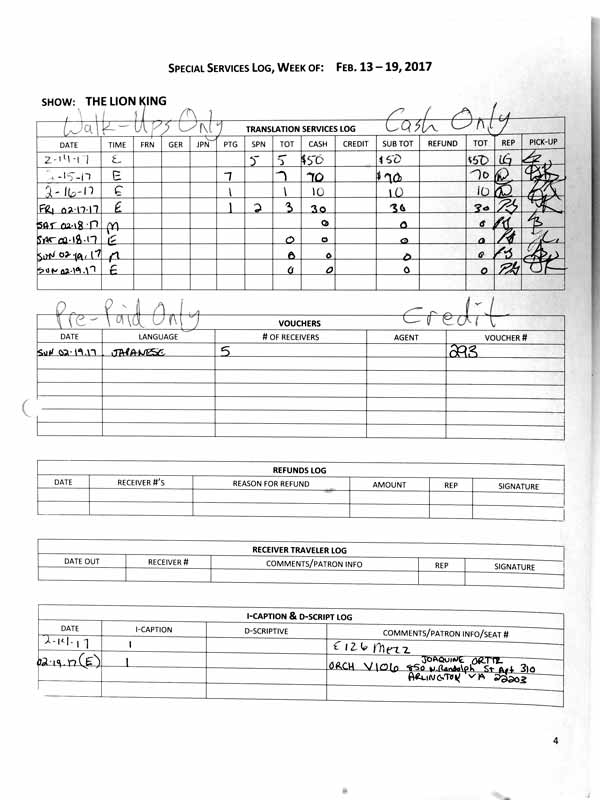 SPECIAL SERVICES LOG, WEEK OF: FEB. 13 – 19, 2017
SHOW: THE LION KING
Walk-Ups Only Cash Only
TRANSLATION SERVICES LOG
DATE TIME FRN GER JPN PTG SPN TOT CASH CREDIT SUB TOT REFUND TOT REP PICK-UP
2-14-17 E 5 5 $50 $50 $50
2-15-17 E 7 7 70 $70 70
2-16-17 E 1 1 10 10 10
FRI 02-17-17 E 1 2 3 30 30 30
SAT 02-18-17 M 0 0 0
SAT 02-18-17 E 0 0 0 0
SUN 02-19-17 M 0 0 0 0
SUN 02-19-17 E 0 0 0 0
Pre-Paid Only Credit
VOUCHERS
DATE LANGUAGE # OF RECEIVERS AGENT VOUCHER #
SUN 02-19-17 JAPANESE 5 293
REFUNDS LOG
DATE RECEIVER #'S REASON FOR REFUND AMOUNT REP SIGNATURE
RECEIVER TRAVELER LOG
DATE OUT RECEIVER # COMMENTS/PATRON INFO REP SIGNATURE
I-CAPTION & D-SCRIPT LOG
DATE I-CAPTION D-SCRIPTIVE COMMENTS/PATRON INFO/SEAT #
2-14-17 1 E126 Merz
02-19-17 (E) 1 ORCH V106 JOAQUINE ORTIZ
850 N. Randolph St Apt 310
ARLINGTON VA 22203
4